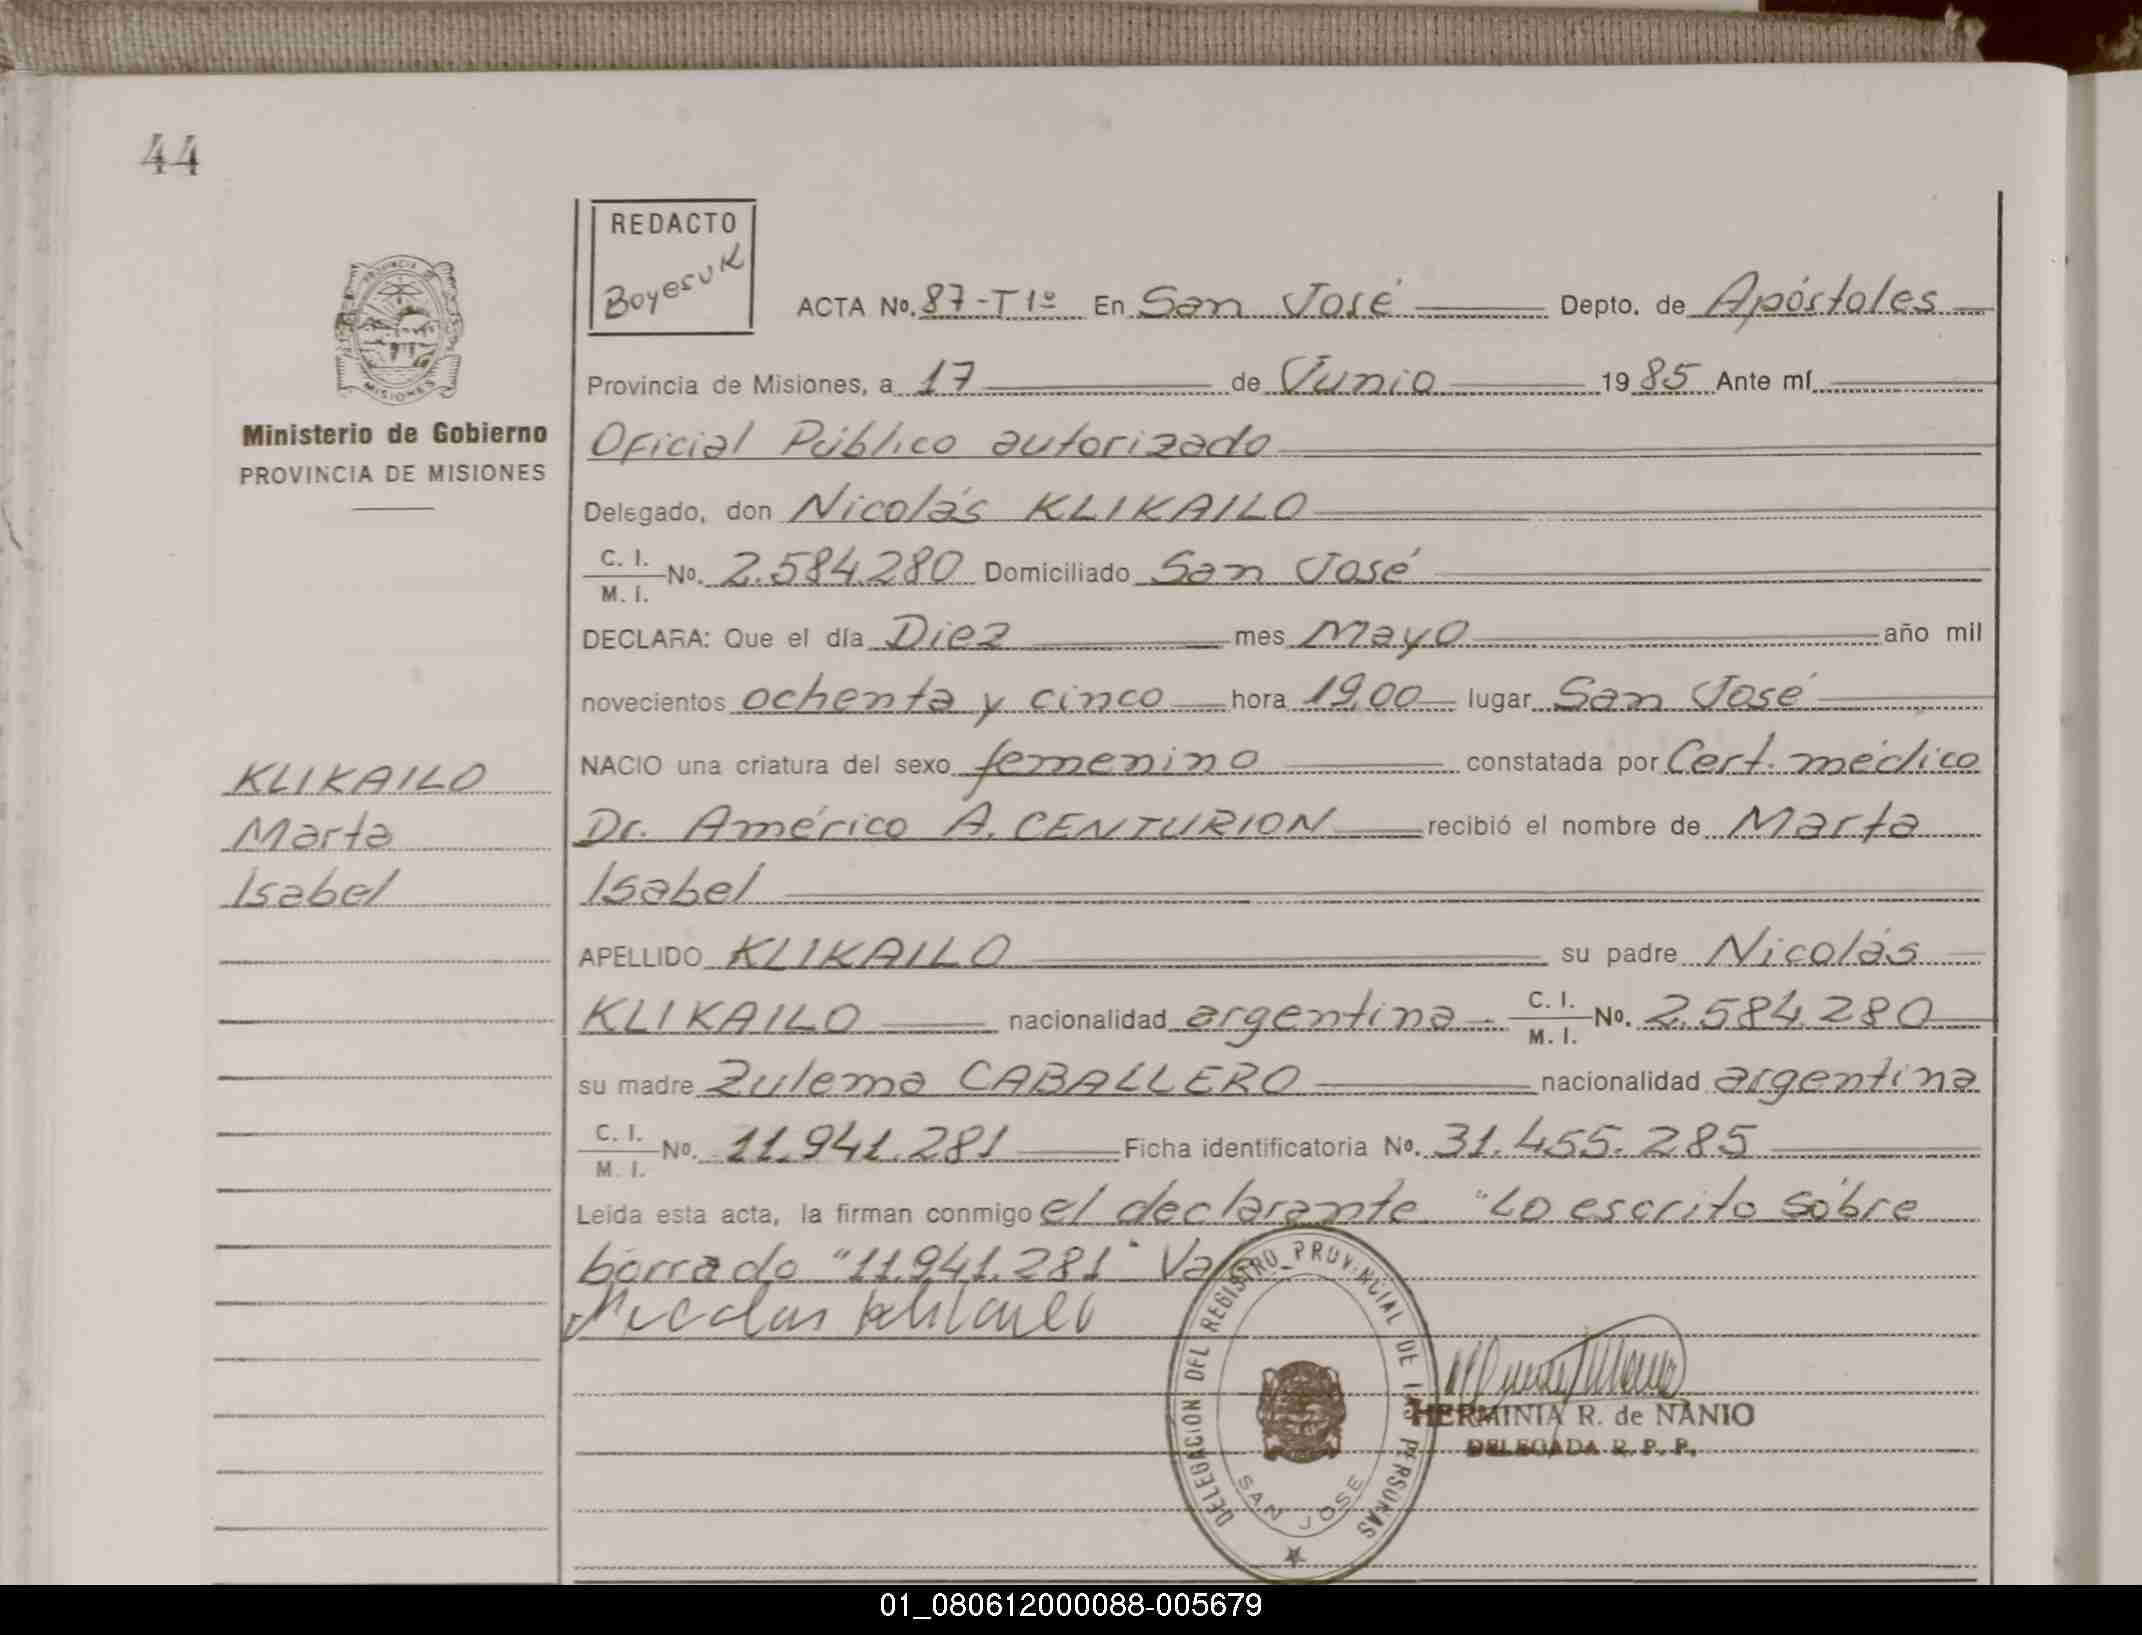 44
REDACTO
Boyesuk
ACTA No. 87-T1º En San José Depto. de Apóstoles
PROVINCIA DE MISIONES
Provincia de Misiones, a 17 de Junio 1985 Ante mí
Ministerio de Gobierno
PROVINCIA DE MISIONES
Oficial Público autorizado
Delegado, don Nicolás KLIKAILO
C. I. M. I. No. 2.584.280 Domiciliado San José
DECLARA: Que el día Diez mes Mayo año mil
novecientos ochenta y cinco hora 19,00 lugar San José
NACIO una criatura del sexo femenino constatada por Cert. médico
Dr. Américo A. CENTURION recibió el nombre de Marta
Isabel
KLIKAILO
Marta
Isabel
APELLIDO KLIKAILO su padre Nicolás
KLIKAILO nacionalidad argentina - C. I. M. I. No. 2.584.280
su madre Zulema CABALLERO nacionalidad argentina
C. I. M. I. No. 11.941.281 Ficha identificatoria No. 31.455.285
Leída esta acta, la firman conmigo el declarante "Lo escrito sóbre
borrado "11.941.281" Vale
Nicolas Klikailo
DELEGACION DEL REGISTRO PROVINCIAL DE LAS PERSONAS
SAN JOSE
HERMINIA R. de NANIO
DELEGADA R. P. P.
01_080612000088-005679